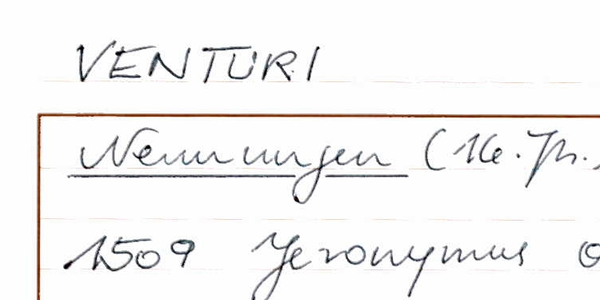 VENTURI
Nennungen (16. Jh.)
1509 Jeronymus